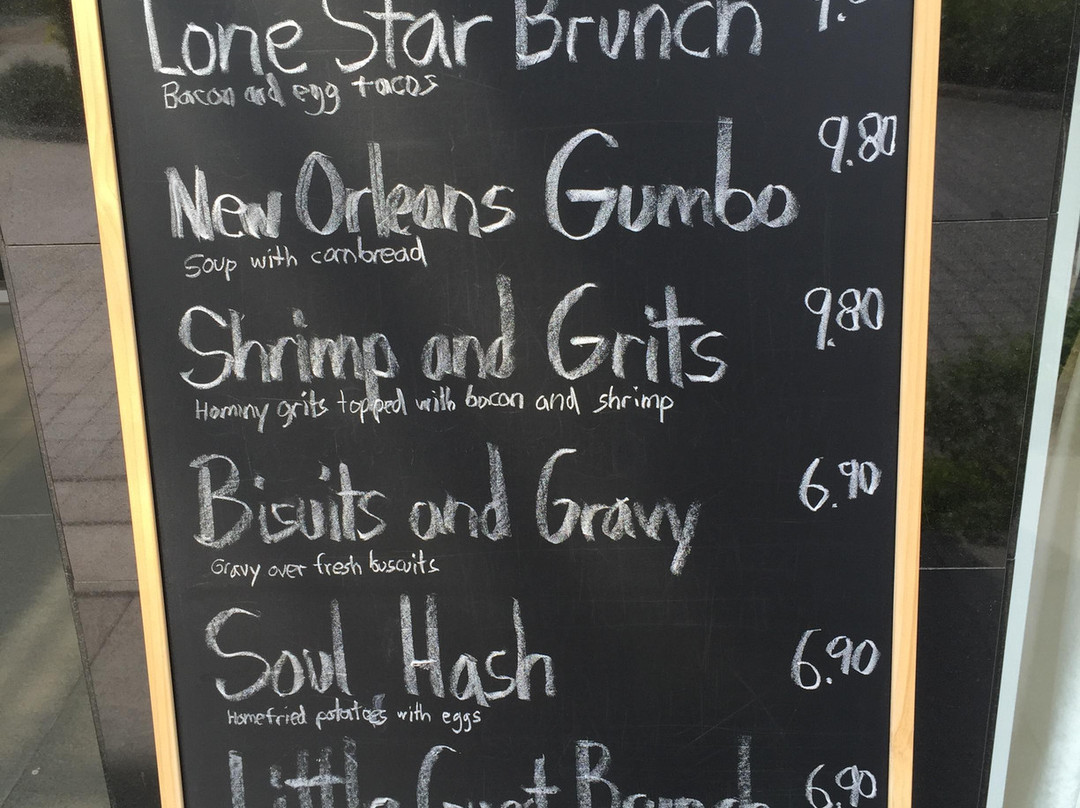 Lone Star Brunch
Bacon and egg tacos
New Orleans Gumbo 9.80
Soup with cornbread
Shrimp and Grits 9.80
Hominy grits topped with bacon and shrimp
Bisuits and Gravy 6.90
Gravy over fresh buscuits
Soul Hash 6.90
Homefried potatoes with eggs
Little Guest Brunch 6.90